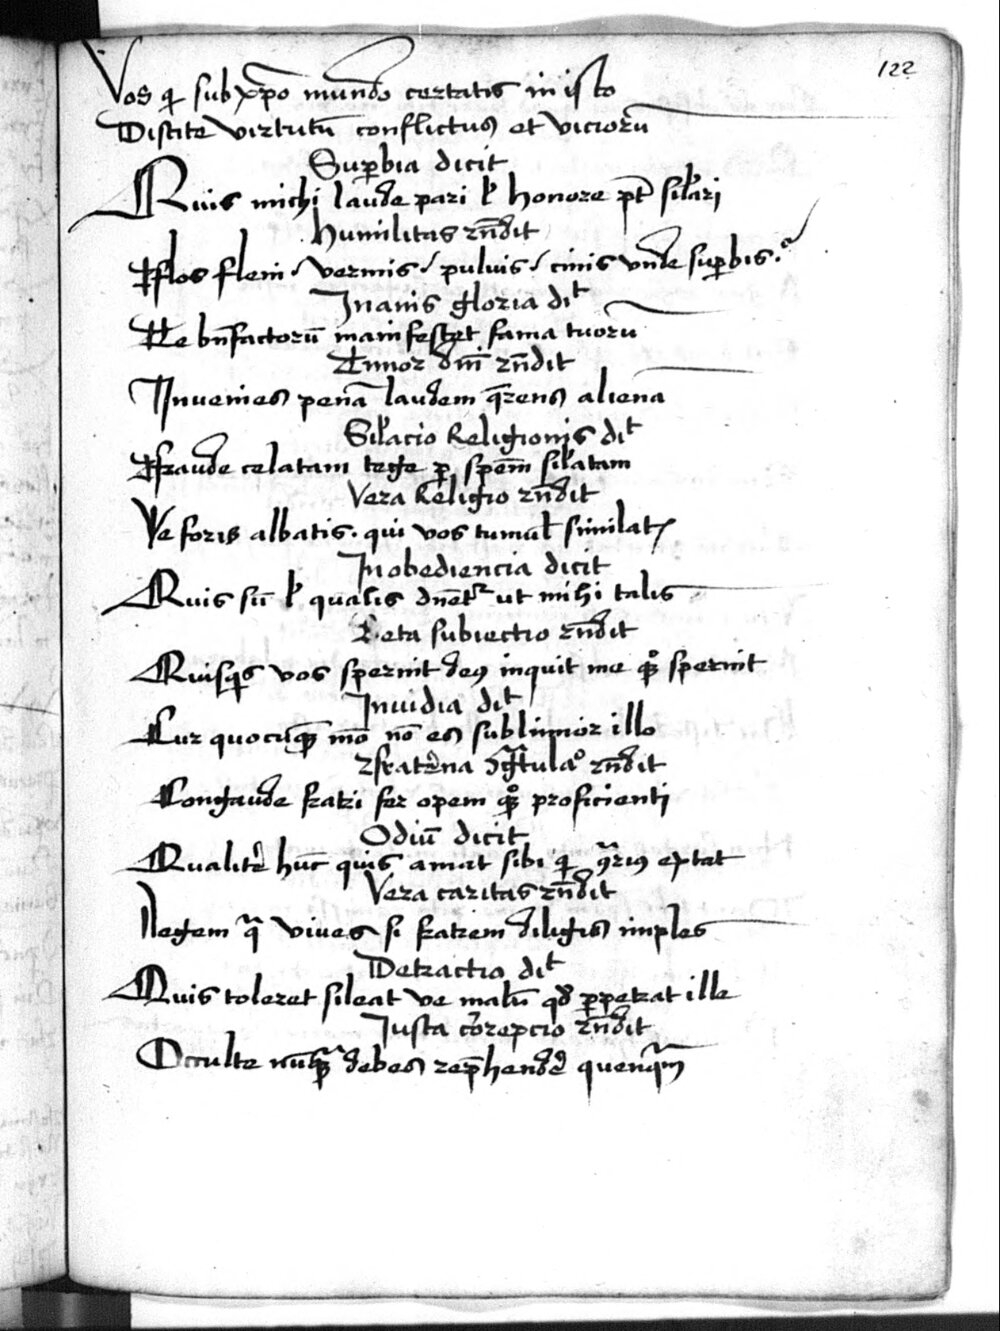 122
Vos q̄ sub xp̄o mundo certatis in isto
Discite virtutū conflictus et vicioꝝ
Suꝑbia dicit
Quis michi laude pari ł honore pt̄ sil̄ari
Humilitas rn̄dit
Flos fleni / vermis / puluis / cinis vnde suꝑbis?
Inanis gloria dit
Te bn̄factorū manifestet fama tuorū
Timor dn̄i rn̄dit
Inuenies penā laudem q̄rens aliena
Sil̄acio Religionis dit
Fraude celatam tege ꝑ spem̄ sil̄atam
Vera Religio rn̄dit
Ve foris albatis. qui vos tumul̄ similatꝭ
Inobediencia dicit
Quis sū ł qualis dn̄et᷑ ut mihi talis
Leta subiectio rn̄dit
Quisq̄s vos spernit deus inquit me quoꝙ spernit
Inuidia dit
Cur quocūqꝫ mō nō es sublimior illo
Fraterna rn̄dit
Congaude fratri fer opem quoꝙ proficienti
Odiū dicit
Qualit̄ hūc quis amat sibi q̄ ꝯ̄rius extat
Vera caritas rn̄dit
Legem q̄ viues si fratrem diligis imples
Detractio dit
Quis toleret sileat ve malū qd̄ ꝑpetrat ille
Iusta cōrepcio rn̄dit
Occulte nunqꝫ debes rep̄hendē quenqm̄